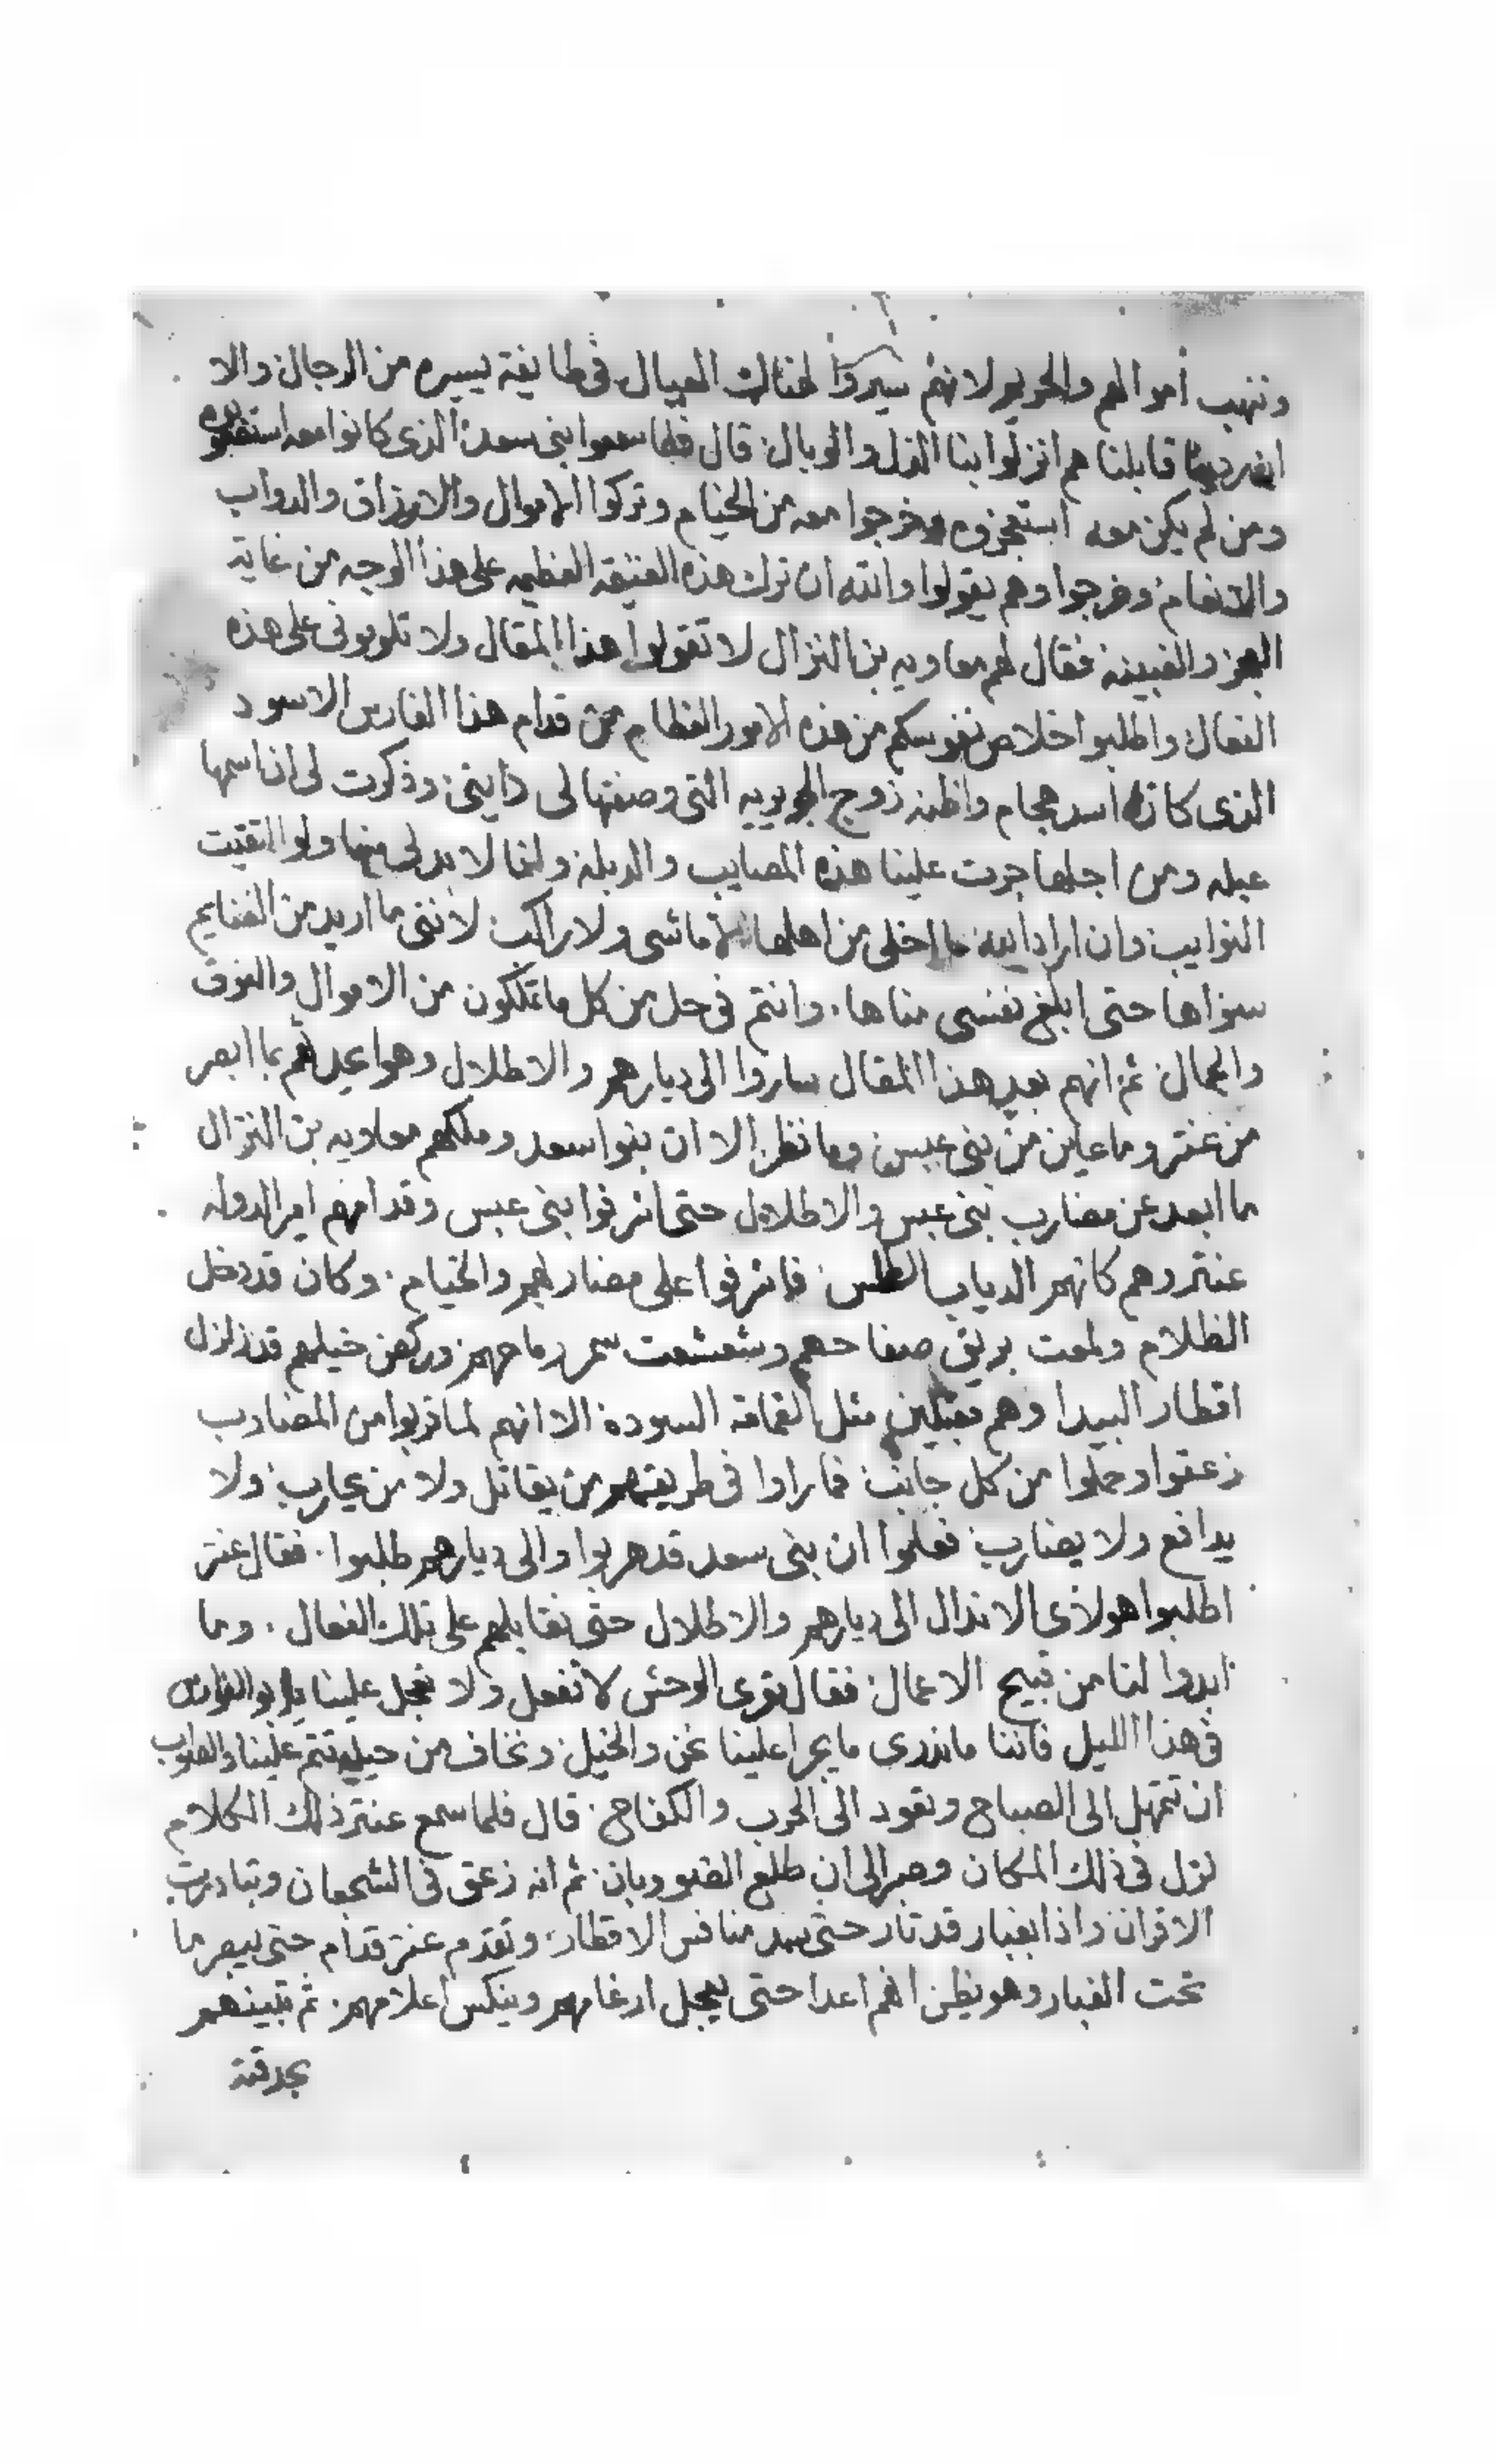 وننهب أموالهم والحريم لانهم سيروا لهناك العيال في طايفة يسيره من الرجال والا
قابلنا هم انزلوا بنا الذل والوبال قال فلما سمعوا بني سعد الذي كانوا معه
ومن لم يكن معه استعجزوه وخرجوا معه من الخيام وتركوا الاموال والارزاق والدواب
والانعام وخرجوا وهم يقولوا والله ان ترك هذه الغنيمة العظيمه على هذا الوجه من غاية
العجز والغبينه فقال لهم معاويه بن النزال لا تقولوا هذا المقال ولا تلوموني على هذه
الفعال واطلبوا خلاص نفوسكم من هذه الامور العظام من قدام هذا الفارس الاسود
الذي كانه اسد هجام واظنه زوج الجويريه التي وصفتها لي دايتي وذكرت لي ان اسمها
عبله ومن اجلها جرت علينا هذه المصايب والدبله وانما لا بد لي منها ولو التقيت
النوايب وان اراد الله ما اخلي من اهلها لا ماشي ولا راكب لانني ما اريد من الغنايم
سواها حتى ابلغ نفسي مناها وانتم في حل من كل ما تملكون من الاموال والنوق
والجمال ثم انهم بعد هذا المقال ساروا الى ديارهم والاطلال وهو اعيد لهم بما ابصر
من عنتر وما عاين من بني عبس وما نظر الا ان بنوا سعد وملكهم معاويه بن النزال
ما ابعد عن مضارب بني عبس والاطلال حتى اشرفوا بني عبس وقدامهم امير الدوله
عنتر وهم كانهم الدياب الطلس فاشرفوا على مضاربهم والخيام وكان قد دخل
الظلام ولمعت بريق صفاحهم وشعشعت سمر رماحهم وركض خيلهم قد زلزل
اقطار البيدا وهم مقبلين مثل الغمامة السودة الا انهم لما قربوا من المضارب
زعقوا وحملوا من كل جانب فما راوا في طريقهم من يقاتل ولا من يحارب ولا
يدافع ولا يضارب فعلموا ان بني سعد قد هربوا والى ديارهم طلبوا فقال عنتر
اطلبوا هولاي الاندال الى ديارهم والاطلال حتى نقابلهم على تلك الفعال وما
ابدوا لنا من قبيح الاعمال فقال مقري الوحش لا تفعل ولا تعجل علينا يا بو الفوارس
في هذا الليل فاننا ما ندري ما يجرا علينا نحن والخيل ونخاف من حيله تتم علينا والصواب
ان تتمهل الى الصباح ونعود الى الحرب والكفاح قال فلما سمع عنتر ذلك الكلام
نزل في ذلك المكان وصبر الى ان طلع الضو وبان ثم انه زعق في الشجعان وتبادرت
الاقران واذا بغبار قد تار حتى سد منافس الاقطار وتقدم عنتر قدام حتى يبصر ما
تحت الغبار وهو يظن انهم اعدا حتى يعجل ارغامهم وينكس اعلامهم ثم تبينهم
بحدقة